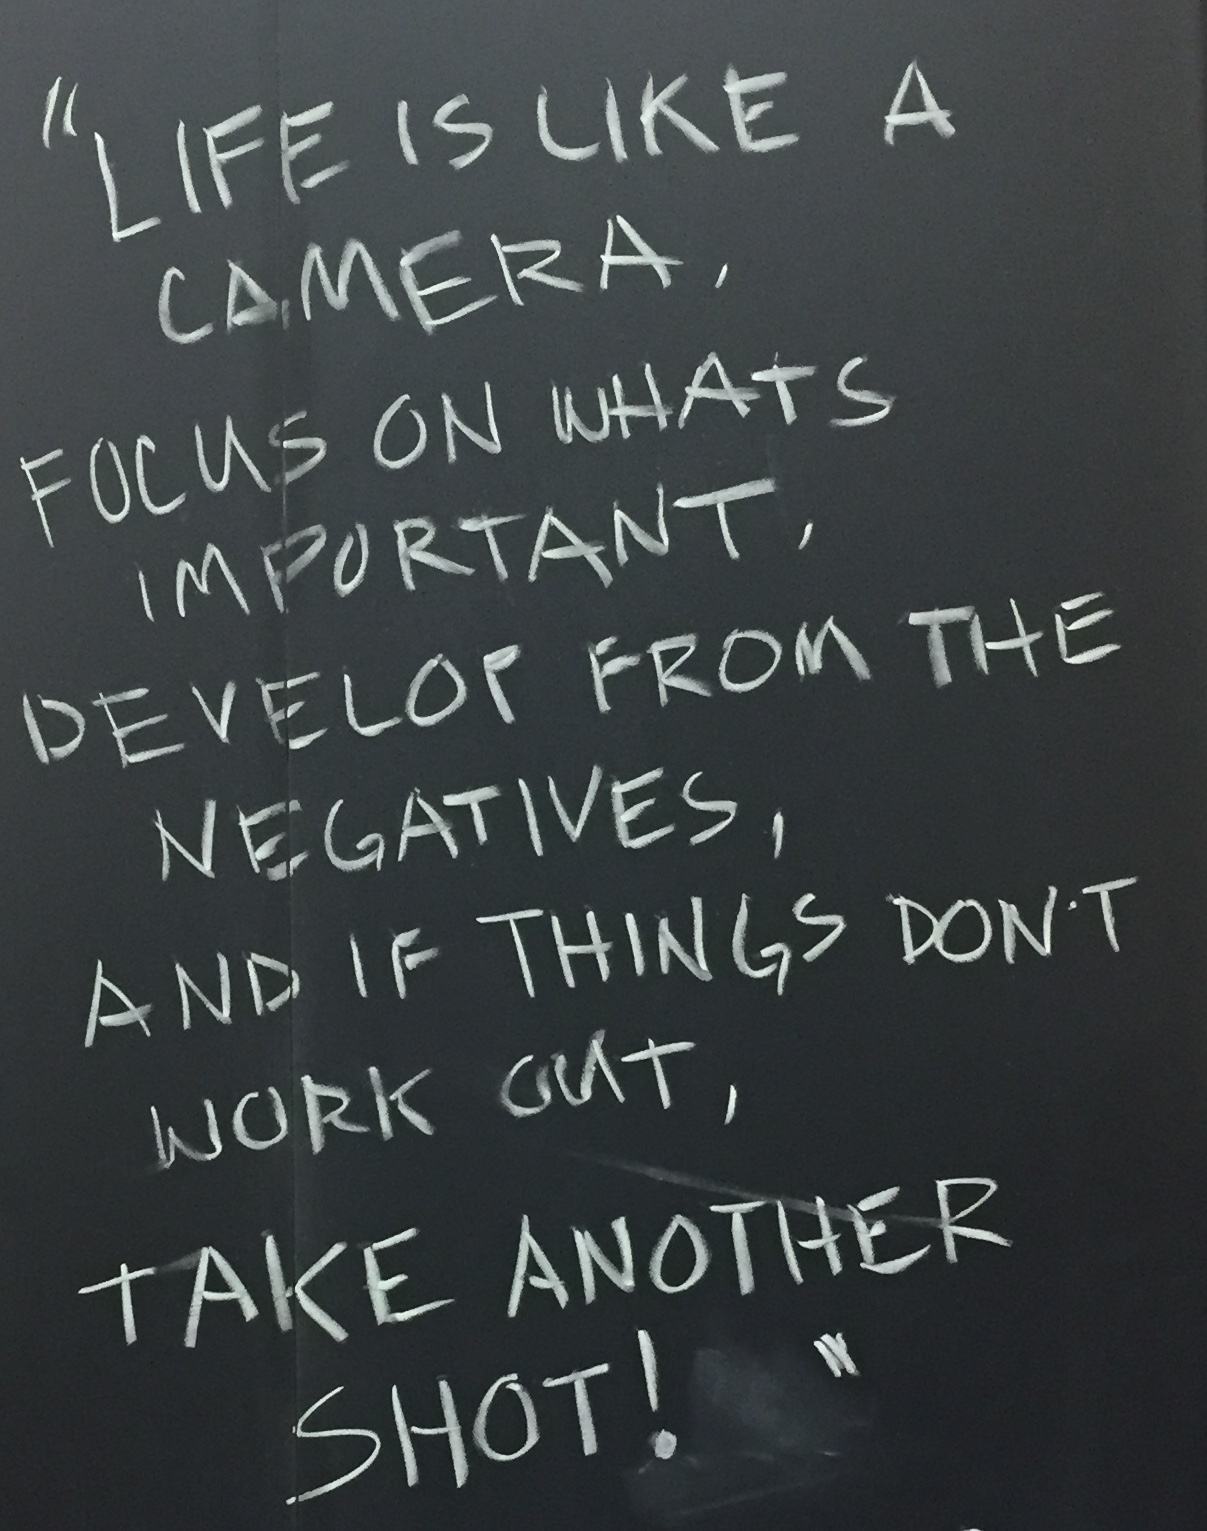 "LIFE IS LIKE A
CAMERA,
FOCUS ON WHATS
IMPORTANT,
DEVELOP FROM THE
NEGATIVES,
AND IF THINGS DON'T
WORK OUT,
TAKE ANOTHER
SHOT! "